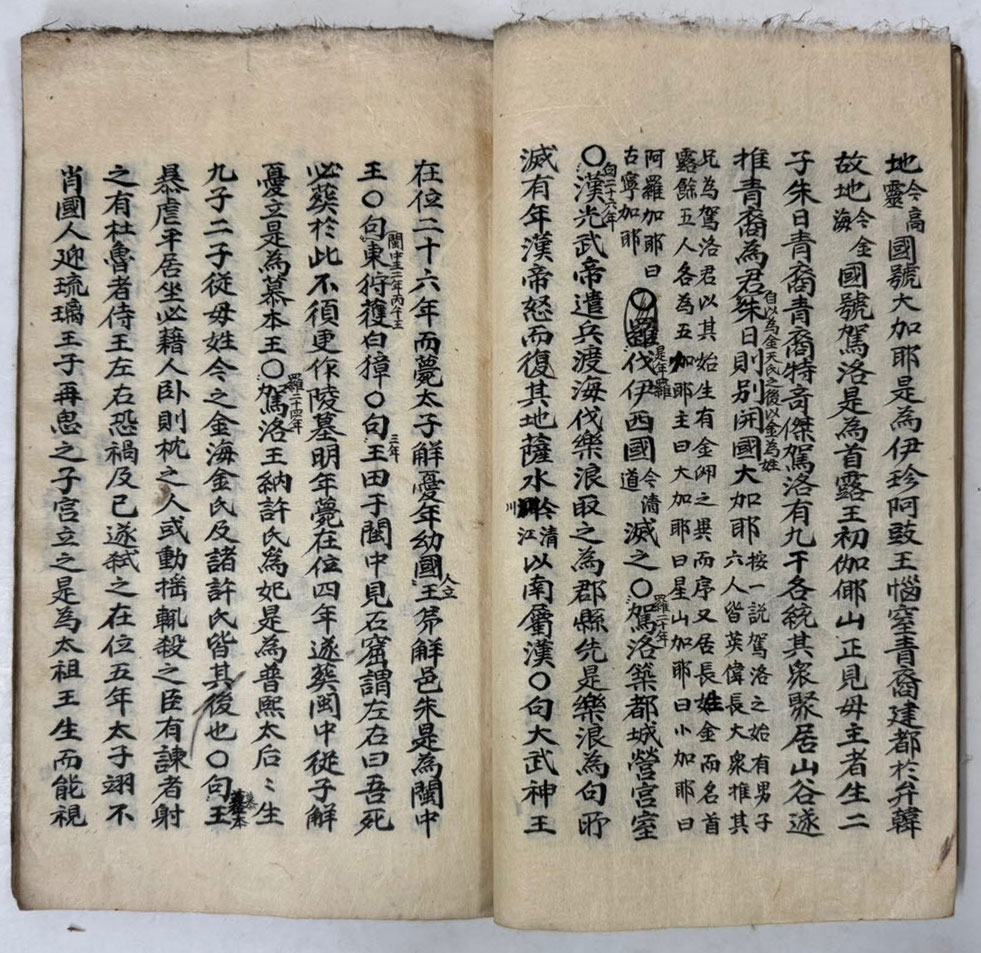 地今高靈國號大加耶是為伊珍阿豉王惱窒青裔建都於弁韓
故地今金海國號駕洛是為首露王初伽倻山正見母主者生二
子朱日青裔青裔特奇傑駕洛有九干各統其眾聚居山谷遂
推青裔為君朱日則別開國大加耶按一說駕洛之始有男子六人皆英偉長大衆推其
自以為金天氏之後以金為姓
兄為駕洛君以其始生有金卵之異而序又居長姓金而名首
露餘五人各為五加耶主曰大加耶曰星山加耶曰小加耶曰
阿羅加耶曰古寧加耶
羅伐伊西國今清道滅之○駕洛築都城營宮室
是年羅
羅二十年
○漢光武帝遣兵渡海伐樂浪取之為郡縣先是樂浪為句所
二十六年
滅有年漢帝怒而復其地薩水今清川江以南屬漢○句大武神王
在位二十六年而薨太子解憂年幼國人立王弟解邑朱是為閩中
王○句東狩獲白獐○句王田于閩中見石窟謂左右曰吾死
三年
必葬於此不須更作陵墓明年薨在位四年遂葬閩中從子解
憂立是為慕本王○駕洛王納許氏為妃是為普熙太后〻生
羅二十四年
九子二子從母姓今之金海金氏及諸許氏皆其後也○句王
慕本
暴虐平居坐必藉人卧則枕之人或動搖輒殺之臣有諫者射
之有杜魯者侍王左右恐禍及己遂弑之在位五年太子翊不
肖國人迎琉璃王子再思之子宮立之是為太祖王生而能視